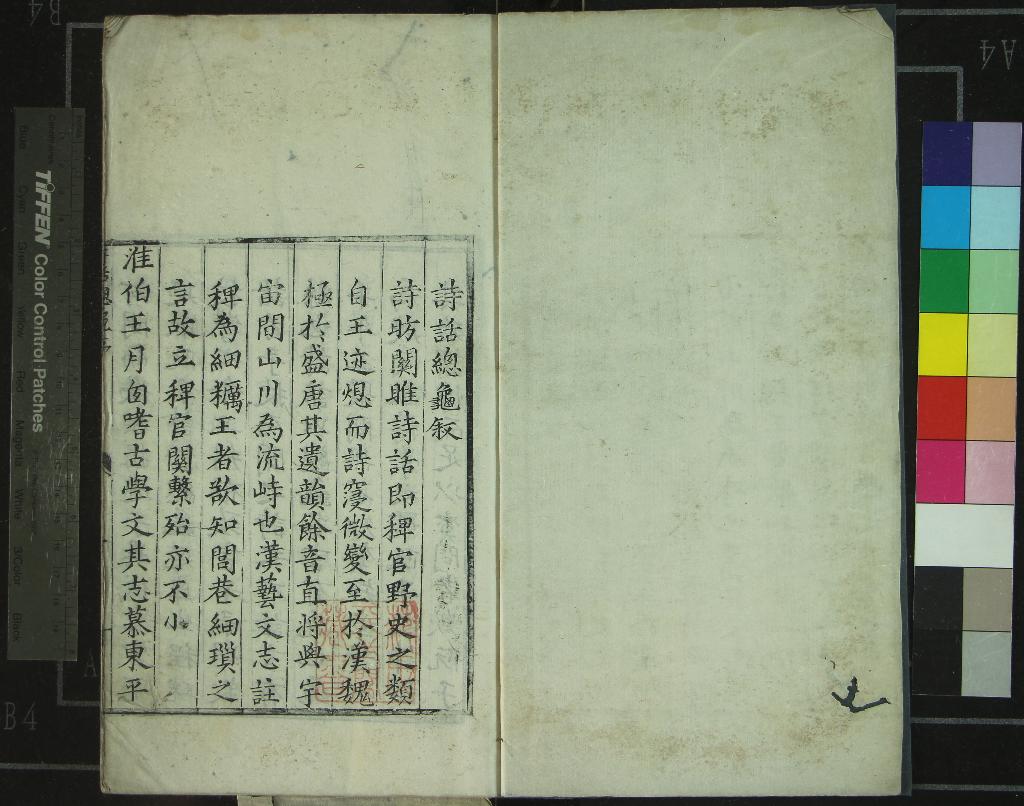 詩話總龜叙
詩昉關雎詩話即稗官野史之類
自王迹熄而詩寖微變至於漢魏
極於盛唐其遺韻餘音直將與宇
宙間山川為流峙也漢藝文志註
稗為細糲王者欲知閭巷細瑣之
言故立稗官關繫殆亦不小
淮伯王月囱嗜古學文其志慕東平
TIFFEN Color Control Patches
Blue
Cyan
Green
Yellow
Red
Magenta
White
3/Color
Black
B4
A4
B4